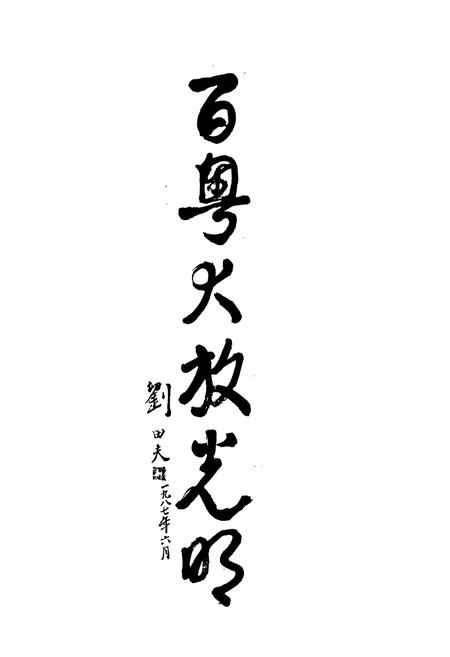 百粤大放光明
劉田夫
一九八七年六月